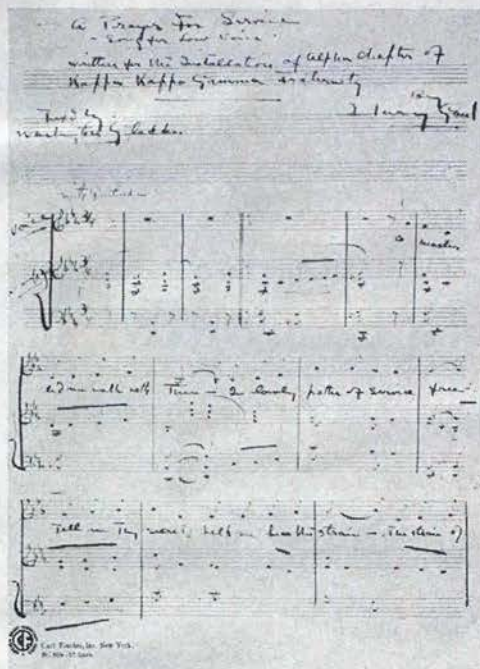 A Prayer for Service
- Song for Low Voice -
written for the Installation of Alpha chapter of
Kappa Kappa Gamma Fraternity
Text by
Washington Gladden
by
Harvey Gaul
voice
O Master
let me walk with Thee - In lowly paths of service free -
Tell me Thy secret, help me bear the strain - The strain of
Carl Fischer, Inc. New York.